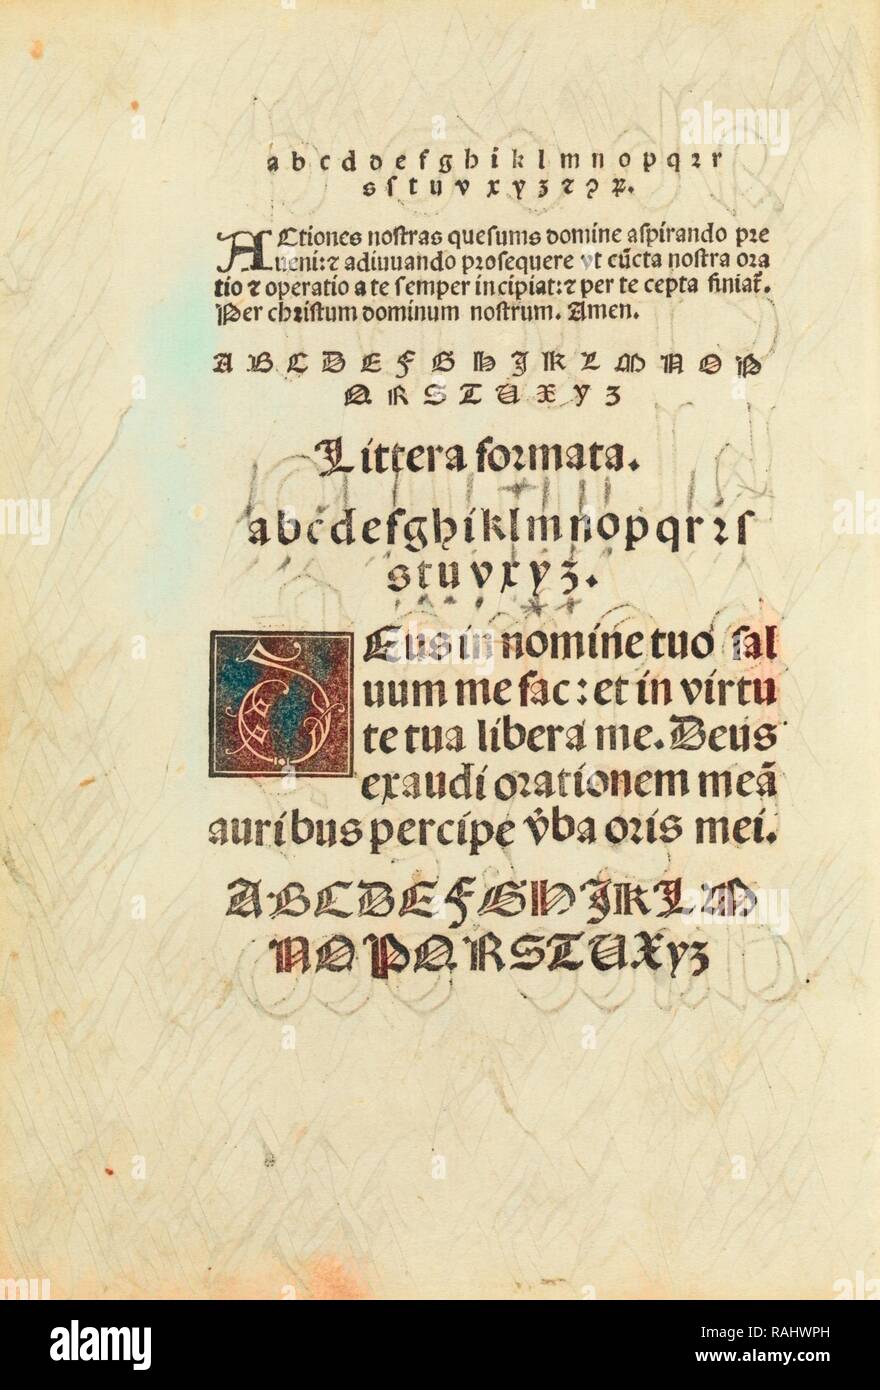 a b c d d e f g h i k l m n o p q ꝛ r
s ſ t u v x y z ⁊ ꝯ ꝝ.
ACtiones noſtras queſums domine aſpirando pꝛe
ueni:⁊ adiuuando pꝛoſequere vt cūcta noſtra oꝛa
tio ⁊ operatio a te ſemper incipiat:⁊ per te cepta finiat̄.
Per chꝛiſtum dominum noſtrum. Amen.
A B C D E F G H J K L M N O P
Q R S T U X Y Z
Littera foꝛmata.
a b c d e f g h i k l m n o p q r ꝛ ſ
s t u v x y z.
DEus in nomine tuo ſal
uum me fac: et in virtu
te tua libera me. Deus
exaudi oꝛationem meā
auribus percipe v̄ba oꝛis mei.
A B C D E F G H J K L M
N O P Q R S T U X y z
alamy
Image ID: RAHWPH
www.alamy.com